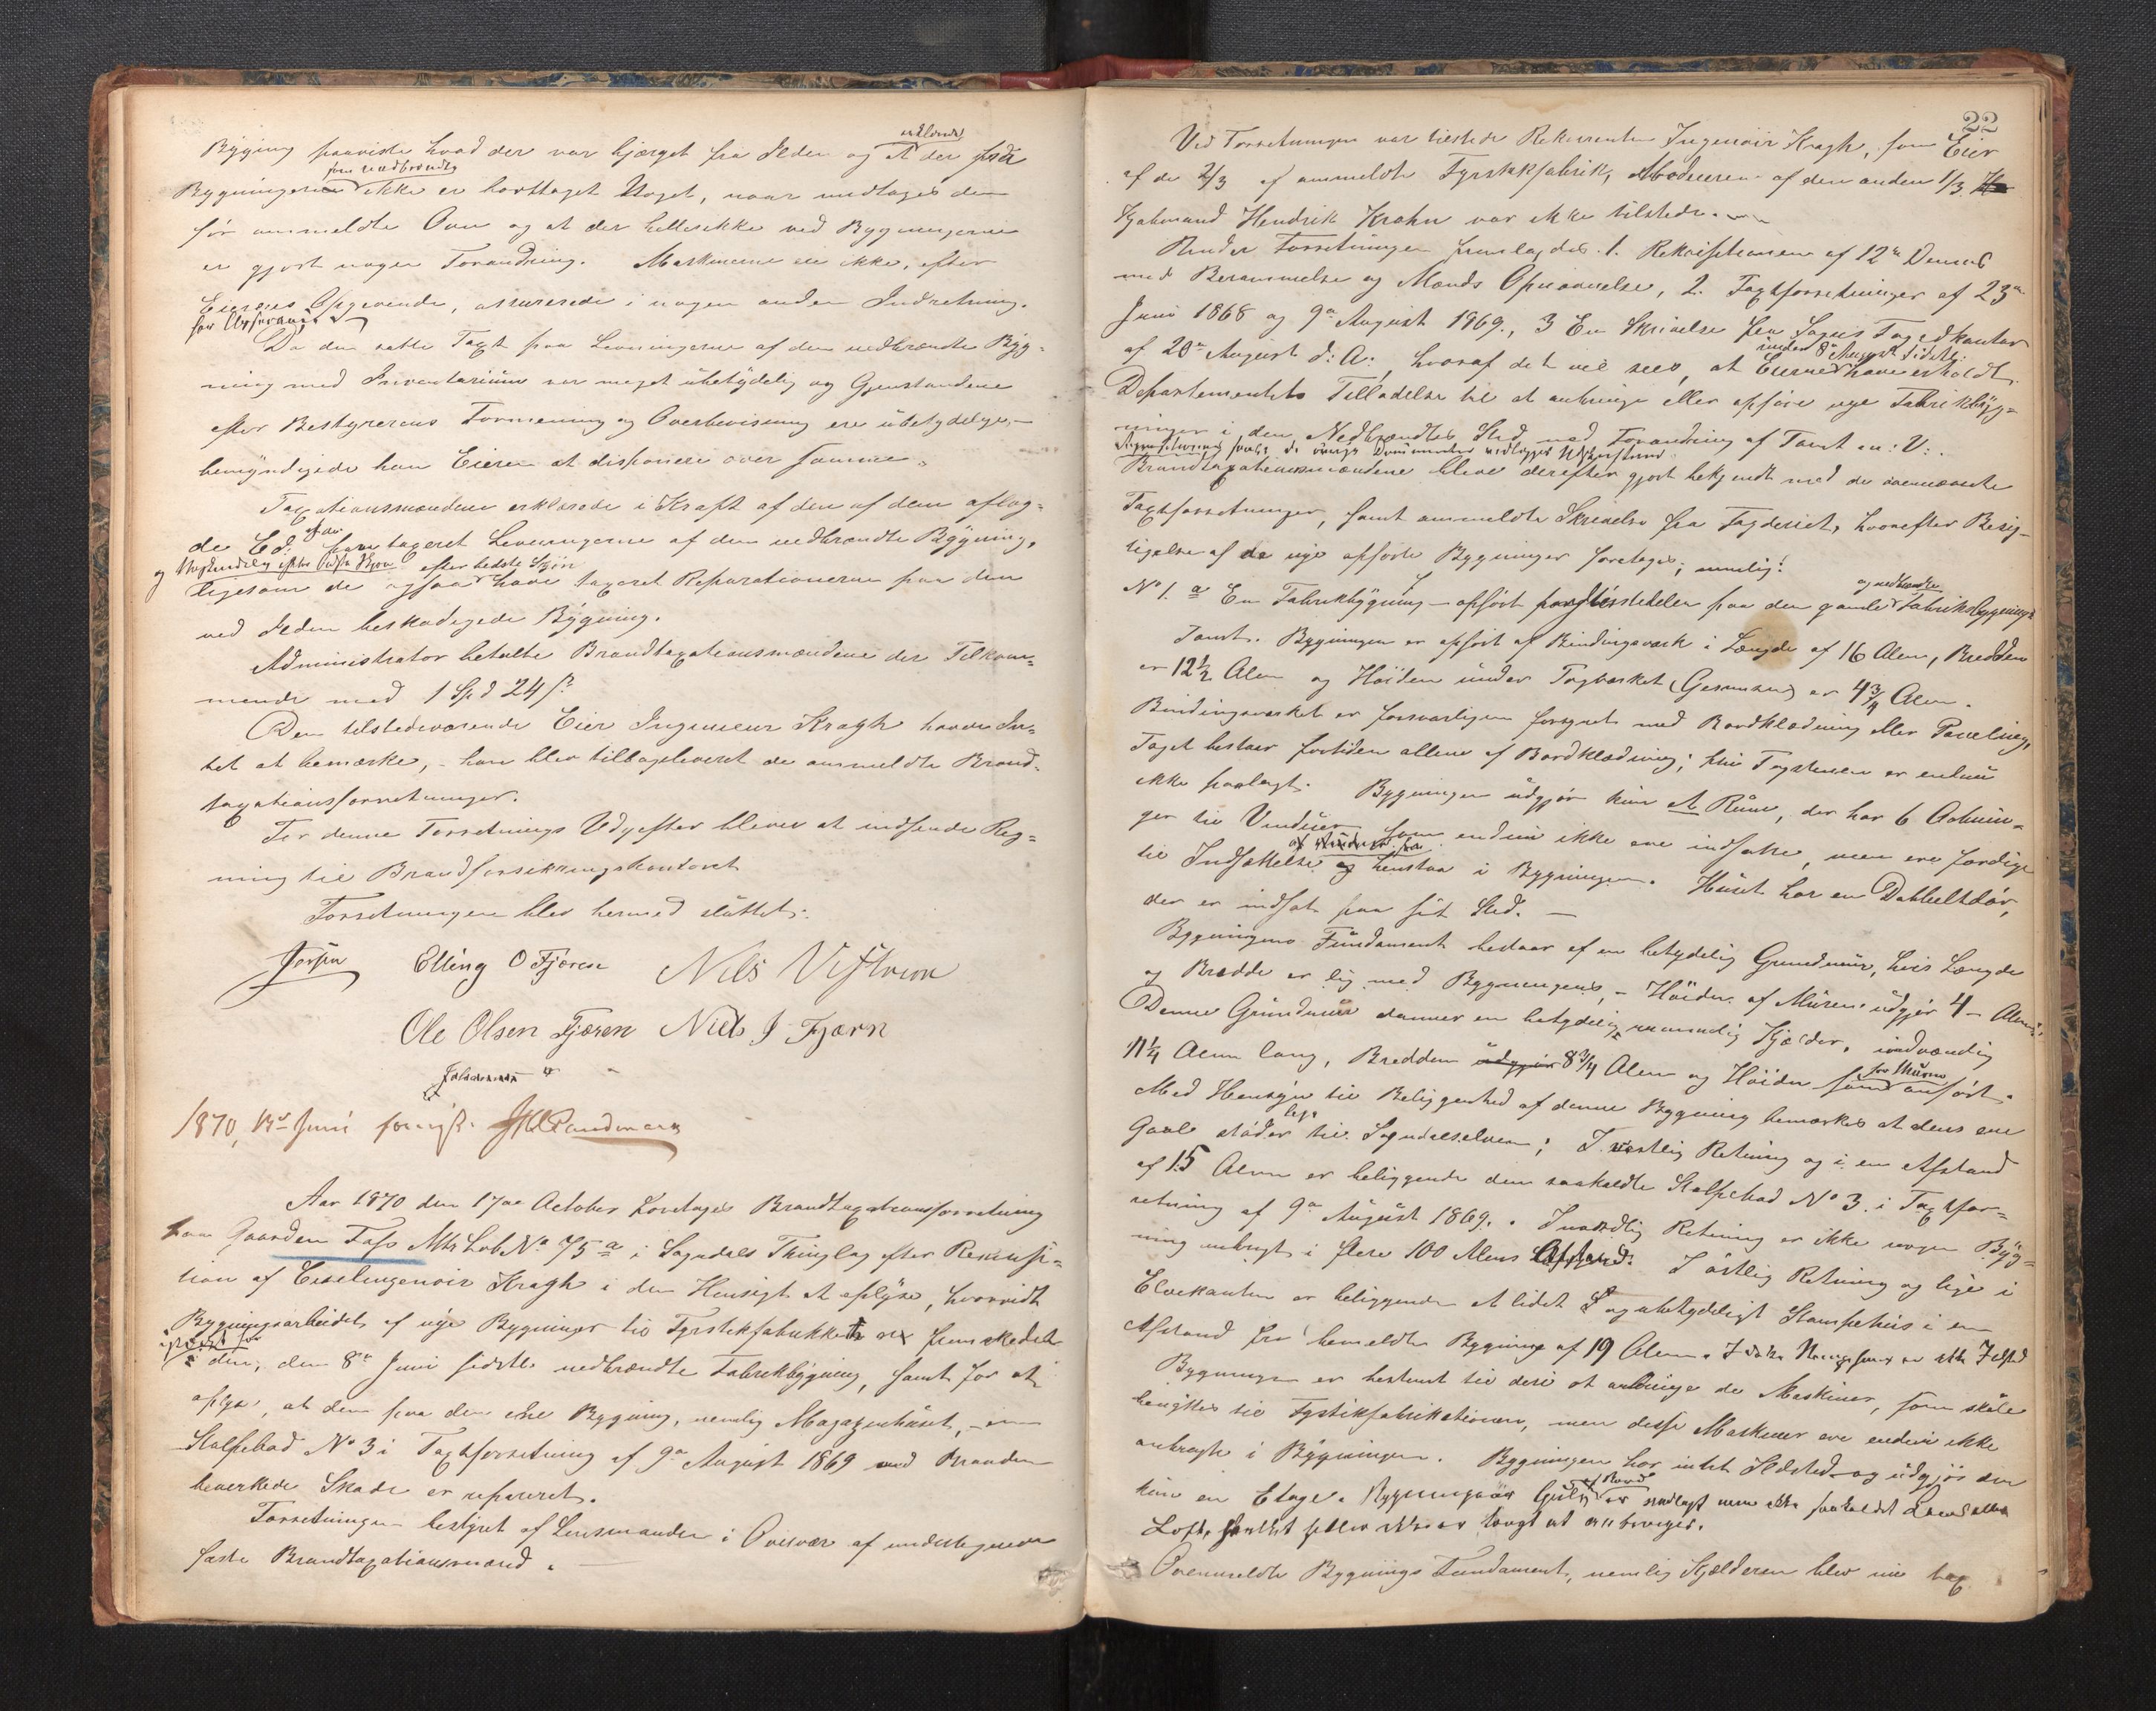 erklæres
Bygning paaviste hvad der var bjærget fra Ilden og at der fra
som nedbrændte
Bygningerne ikke er borttaget Noget, naar undtages den
før ommeldte Ovn og at der hellerikke ved Bygningerne
er gjort nogen Forandring. Maskinerne ere ikke, efter
Eierens Opgivende, assurerede i nogen anden Indretning.
for Assurance
Da den satte Taxt paa Levningerne af den nedbrændte Byg-
ning med Inventarium var meget ubetydelig og Gjenstandene
efter Bestyrerens Formening og Overbevisning ere ubetydelige,
bemyndigede han Eieren at disponere over samme.
Taxationsmændene erklærede i Kraft af den af dem aflag-
de Ed: have taxeret Levningerne af den nedbrændte Bygning,
og efter bedste Skjøn
ligesom de ogsaa have taxeret Reparationerne paa den
ved Ilden beskadigede Bygning.
Administrator betalte Brandtaxationsmændene det Tilkom-
mende med 1 Spd 24 ß
Den tilstedeværende Eier Ingenieur Kragh havde In-
tet at bemærke, – han blev tilbageleveret de ommeldte Brand-
taxationsforretninger.
For denne Forretnings Udgifter bliver at indsende Reg-
ning til Brandforsikkringskontoret
Forretningen blev hermed sluttet.
Elling O Fjæren Nils
Ole Olsen Fjæren Niels J Fjærn
1870, Juni
Aar 1870 den 17de October foretages Brandtaxationsforretning
paa Gaarden Foss Mtr Lob No 75 a i Sogndals Thinglag efter Rekvisi-
tion af Civilingeniør Kragh i den Hensigt at oplyse, hvorvidt
Bygningsarbeidet af nye Bygninger til Fyrstikfabrikken er fremskredet
istedet for
i den, den 8de Juni sidstl. nedbrændte Fabrikbygning, samt for at
oplyse, at den paa den ene Bygning, nemlig Magazinhuset, – en
Stolpebod No 3 i Taxtforretning af 9de August 1869 ved Branden
bevirkede Skade er repareret.
Forretningen bestyret af Lensmanden i Overvær af undertegnede
faste Brandtaxationsmænd.
22
Ved Forretningen var tilstede Rekvirenten Ingeniør Kragh, som Eier
af de 2/3 af ommeldte Fyrstikfabrik, Medeieren af den anden 1/3
Kjøbmand Hendrik Krohn var ikke tilstede.
Under Forretningen fremlagdes: 1. Rekvisitionen af 12te Dennes
med Berammelse og Mænds Opnævnelse, 2. Taxtforretninger af 23de
Juni 1868 og 9de August 1869, 3 En Skrivelse fra Sogns Fogedkontor
af 20de August d: A:, hvoraf det vil sees, at Eierne have erholdt
under 8de August sidstl:
Departementets Tilladelse til at anbringe eller opføre nye Fabrikbyg-
ninger i den Nedbrændtes Sted med Forandring af Tomt m: V:.
de øvrige Dokumenter vedlægges Udskriften
Brandtaxationsmændene bleve derefter gjort bekjendt med de ovennævnte
Taxtforretninger, samt ommeldte Skrivelse fra Fogderiet, hvorefter Besig-
tigelse af de nye opførte Bygninger foretages; nemlig:
og nedbrændte
No 1. a En Fabrikbygning – opført paa Tomten paa den gamle Fabrikbygnings
Tomt. Bygningen er opført af Bindingsværk i Længde af 16 Alen, Bredden
er 12 1/2 Alen og Høiden under Tagværket (Gesimsen) er 4 3/4 Alen.
Bindingsværket er forsvarligen forsynet med Bordklædning eller Paneling.
Taget bestaar fortiden allene af Bordklædning; thi Tagstenen er endnu
ikke paalagt. Bygningen udgjør kun et Rum, der har 6 Aabnin-
ger til Vinduer som endnu ikke ere indsatte, men ere færdige
til Indsættelse og henstaa i Bygningen. Huset har en Dobbeltdør,
der er indsat paa sit Sted. –
Bygningens Fundament bestaar af en betydelig Grundmur, hvis Længde
og Bredde er lig med Bygningens, – Høiden af Muren udgjør 4 – Alen.
Denne Grundmur danner en betydelig rummelig Kjælder, indvendig
11 1/4 Alen lang, Bredden udgjør 8 3/4 Alen og Høiden som anført.
for Muren
Med Hensyn til Beliggenhed af denne Bygning bemærkes at dens ene
Gavl støder lige til Sogndalselven; I vestlig Retning og i en Afstand
af 15 Alen er beliggende den saakaldte Stolpebod No 3. i Taxtfor-
retning af 9de August 1869. I nordlig Retning er ikke nogen Byg-
ning anbragt i flere 100 Alens Afstand. I østlig Retning og lige i
Elvekanten er beliggende et lidet og ubetydeligt Stampehus i en
Afstand fra bemeldte Bygning af 19 Alen. I dette er ikke Ildsted
Bygningen er bestemt til deri at anbringe de Maskiner, som skale
benyttes til Fyrstikfabrikationen, men disse Maskiner ere endnu ikke
anbragte i Bygningen. Bygningen har intet Ildsted og udgjør den
kun en Etage. Bygningens Gulv af Bord er nedlagt men ikke
Loft,
Ovenmeldte Bygnings Fundament, nemlig Kjælderen blev nu tax